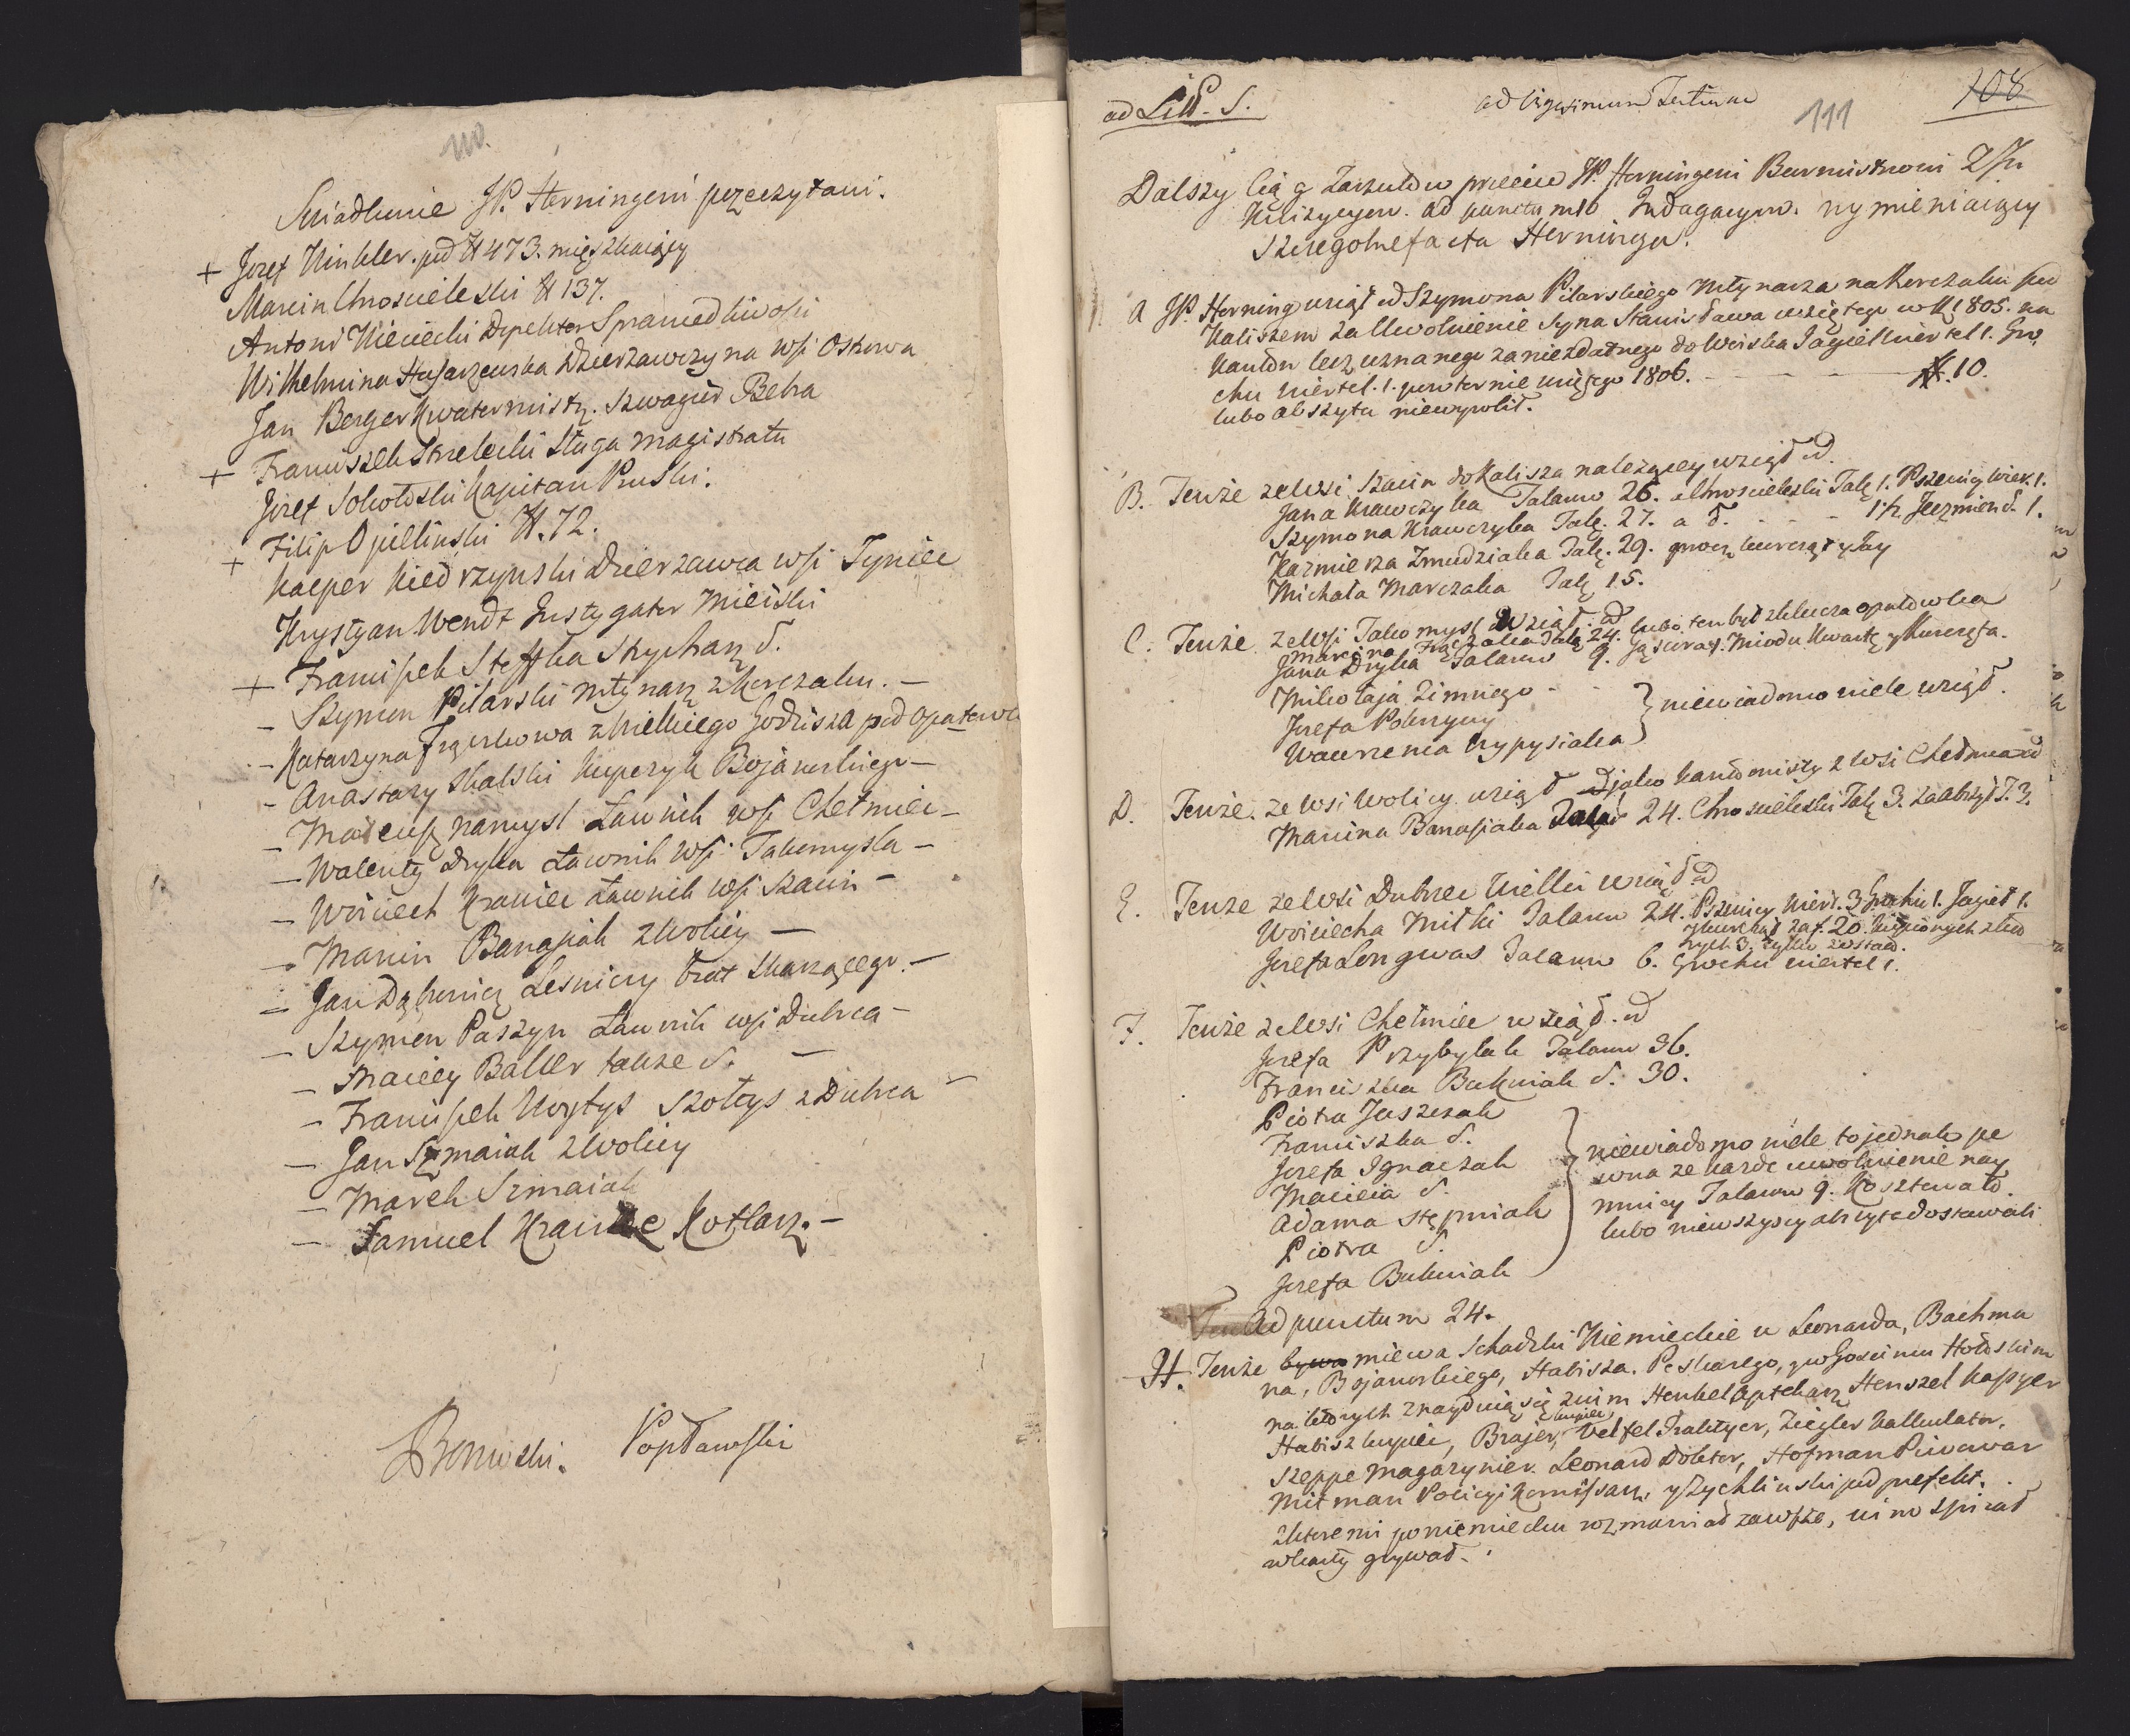 110.
Swiadkowie JP. Herningowi przeczytani.
+ Jozef Winkler. pod N 473. mięszkaiący
Marcin Chroscielski N 137.
Antoni Wieciecki Inspektor Sprawedliwosci
Wilhelmina dzierzawczyna wsi Oskowa
Jan Berger Kwatermistrz. Szwagier Betra
+ Franciszek Strzelecki Sługa Magistratu
Jozef Sokołoski Kapitan Pruski.
+ Filip Opielinski N. 72.
Kasper Kiedrzynski Dzierzawca wsi Tyniec
Krystyan Wendt Instygator Mieiski
+ Franciszek Steffka Stycharz d.
– Szymon Pilarski Młynarz z Korczaku. –
– Katarzyna Frąckowa z Wielkiego Godzisza pod Opatow
– Anastazy Skalski Kupczyk Bojanoskiego –
– Mateusz namysl Ławnik wsi Chełmiec –
– Walenty Dryka Ławnik wsi Takomysla –
– Woiciech Krawiec Ławnik wsi Szacin –
– Marcin Banasiak z Wolicy –
– Jan Dąbrowicz Lesniczy brat Skarzącego. –
– Szymon Paszyn Ławnik wsi Dubca –
– Maciey Baller takze d. –
– Franciszek Woytys Szołtys z Dubca –
– Jan Szmaiak z Wolicy
– Marek Szmaiak
– Samuel Krauze Kotlarz. –
Popławski
ad Litt. S.
ad Vigesimum Tertium
108
111
Dalszy Ciąg Zarzutow przeciw JP. Herningowi Burmistrzowi
ad punctum 10 Indagacyjn. wymieniaiący
Szczegolne facta Herninga.
A JP. Herning wziął od Szymona Pilarskiego Młynarza na Korczaku pod
Kaliszem za Uwolnienie Syna Stanisława wziętego w R. 1805. na
Kanton lecz uznanego za niezdatnego do Woiska Jagieł wiertel 1. Gro
chu wiertel. 1. powtornie wziętego 1806. – – – 10.
lubo abszytu niewyrobił.
B. Tenże ze Wsi Szacin do Kalisza należącey wziął od
Jana Krawczyka Talarow 26. a Chroscielski Tal. 1. Pszenicy wier. 1.
Szymona Krawczyka Tal. 27. a d. – – – 1 ½ Jęczmien d. 1.
Kazmierza Zmudziaka Tal. 29. procz kurcząt y Jay
Michała Marczaka Tal. 15.
C. Tenże ze Wsi Takomysl wziął od
Marcina Frączaka Tal. 24. lubo ten był z klucza opatowka
Jana Dryka Talarow 9. Gąsiora 1. Miodu Kwartę y Kurczęta.
Mikołaja Zimnego – –
Jozefa Pokrzywy
Wawrzenca Czypysiaka
niewiadomo wiele wziął.
D. Tenże. ze Wsi Wolicy wziął od jako Kantonisty z Wsi Chełmca
Marcina Banasiaka Talar 24. Chroscielski Tal. 3. za abszyt T. 3.
E. Tenze ze Wsi Dubiec Wielki wziął od
Woiciecha Mitki Talarow 24. Pszenicy wiert. 3 Grochu 1. Jagieł 1.
Kurcząt za f. 20. kupionych z ktor
rych 3. tylko zostało.
Jozefa Longwas Talarow 6. Grochu wiertel 1.
F. Tenże ze Wsi Chełmiec wziął. od
Jozefa Przybylak Talarow 36.
Franciszka Bukwiak d. 30.
Piotra Juszczak
Franciszka d.
Jozefa Ignaczak
Macieia d.
Adama Stępniak
Piotra d.
Jozefa Bukwiak
niewiadomo wiele to jednak pe
wna ze każde uwolnienie nay
mniey Talarow 9. Kosztowało.
lubo niewszyscy abszyta dostawali
Ad punctum 24.
H. Tenże bywa miewa Schadzki Niemieckie u Leonarda, Bachma
na, Bojanoskiego, Habisza. Peskarego, y w Goscincu Hołdskim
na ktorych znayduią się z nim Henkel Aptekarz Henszel Kassyer
Habisz kupiec, Brajer, kupiec, Velfel Traktyer, Ziegler Kalkulator,
Szeppe Magazynier. Leonard Doktor, Hofman Piwowar
Mitman Policyi Komissarz, y Zychlinski podprefekt.
z ktoremi po niemiecku rozmawiał zawsze, wino spiiał
w karty grywał.